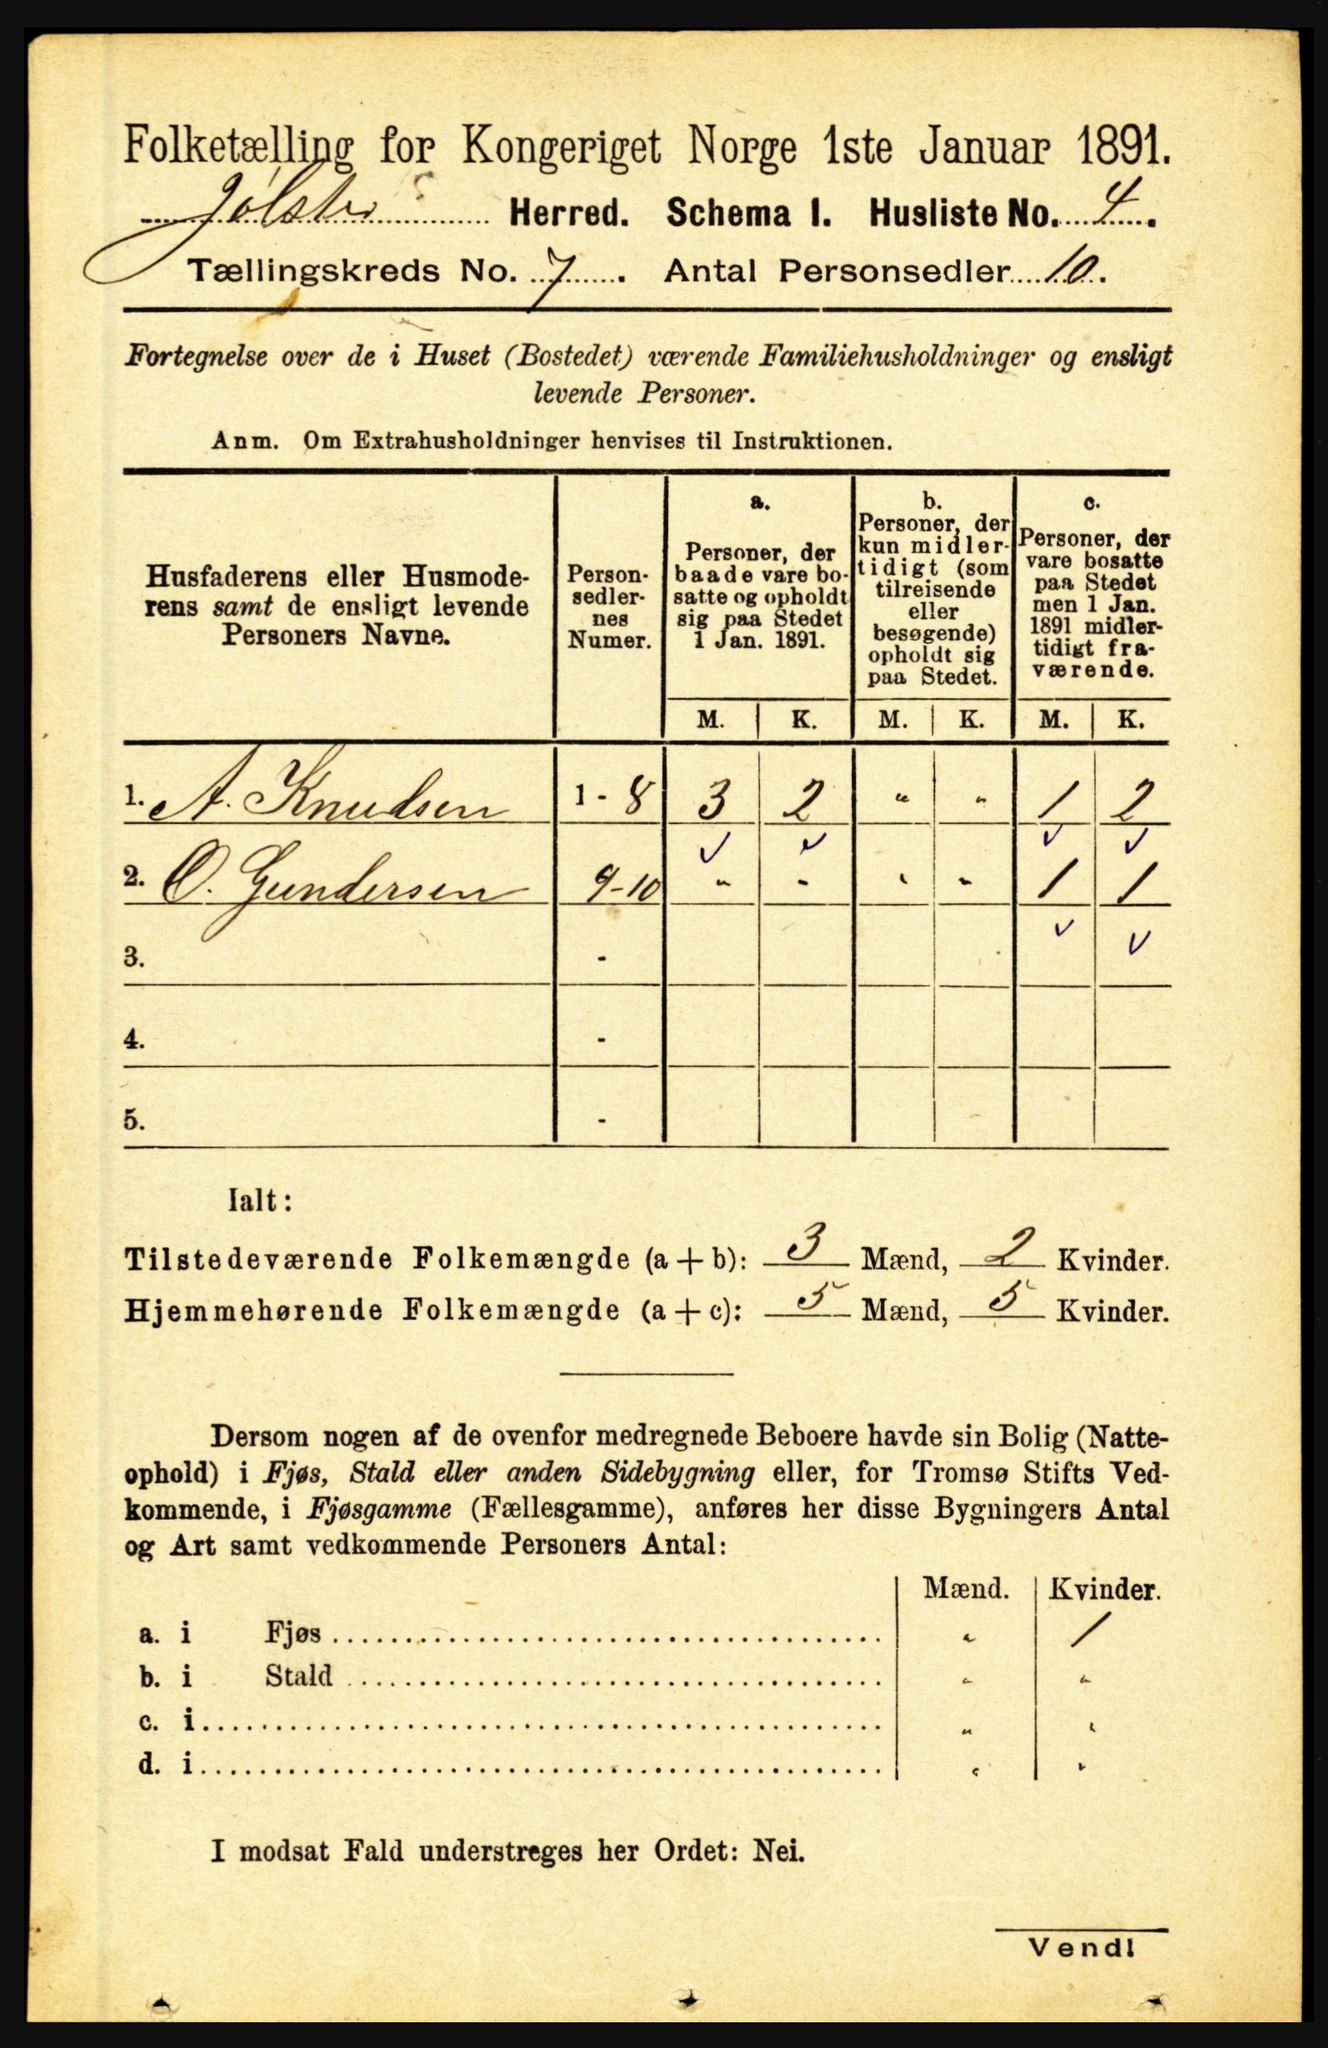 Folketælling for Kongeriget Norge 1ste Januar 1891.
Jølster Herred. Schema I. Husliste No. 4.
Tællingskreds No. 7. Antal Personsedler 10.
Fortegnelse over de i Huset (Bostedet) værende Familiehusholdninger og ensligt
levende Personer.
Anm. Om Extrahusholdninger henvises til Instruktionen.
Husfaderens eller Husmode-
rens samt de ensligt levende
Personers Navne.
Person-
sedler-
nes
Numer.
a.
Personer, der
baade vare bo-
satte og opholdt
sig paa Stedet
1 Jan. 1891.
b.
Personer, der
kun midler-
tidigt (som
tilreisende
eller
besøgende)
opholdt sig
paa Stedet.
c.
Personer, der
vare bosatte
paa Stedet
men 1 Jan.
1891 midler-
tidigt fra-
værende.
M. K. M. K. M. K.
1. A. Knudsen 1 - 8 3 2 " " 1 2
2. O. Gundersen 9-10 " " " " 1 1
3. -
4. -
5. -
Ialt:
Tilstedeværende Folkemængde (a + b): 3 Mænd, 2 Kvinder.
Hjemmehørende Folkemængde (a + c): 5 Mænd, 5 Kvinder.
Dersom nogen af de ovenfor medregnede Beboere havde sin Bolig (Natte-
ophold) i Fjøs, Stald eller anden Sidebygning eller, for Tromsø Stifts Ved-
kommende, i Fjøsgamme (Fællesgamme), anføres her disse Bygningers Antal
og Art samt vedkommende Personers Antal:
Mænd. Kvinder.
a. i Fjøs " 1
b. i Stald " "
c. i " "
d. i " "
I modsat Fald understreges her Ordet: Nei.
Vend!